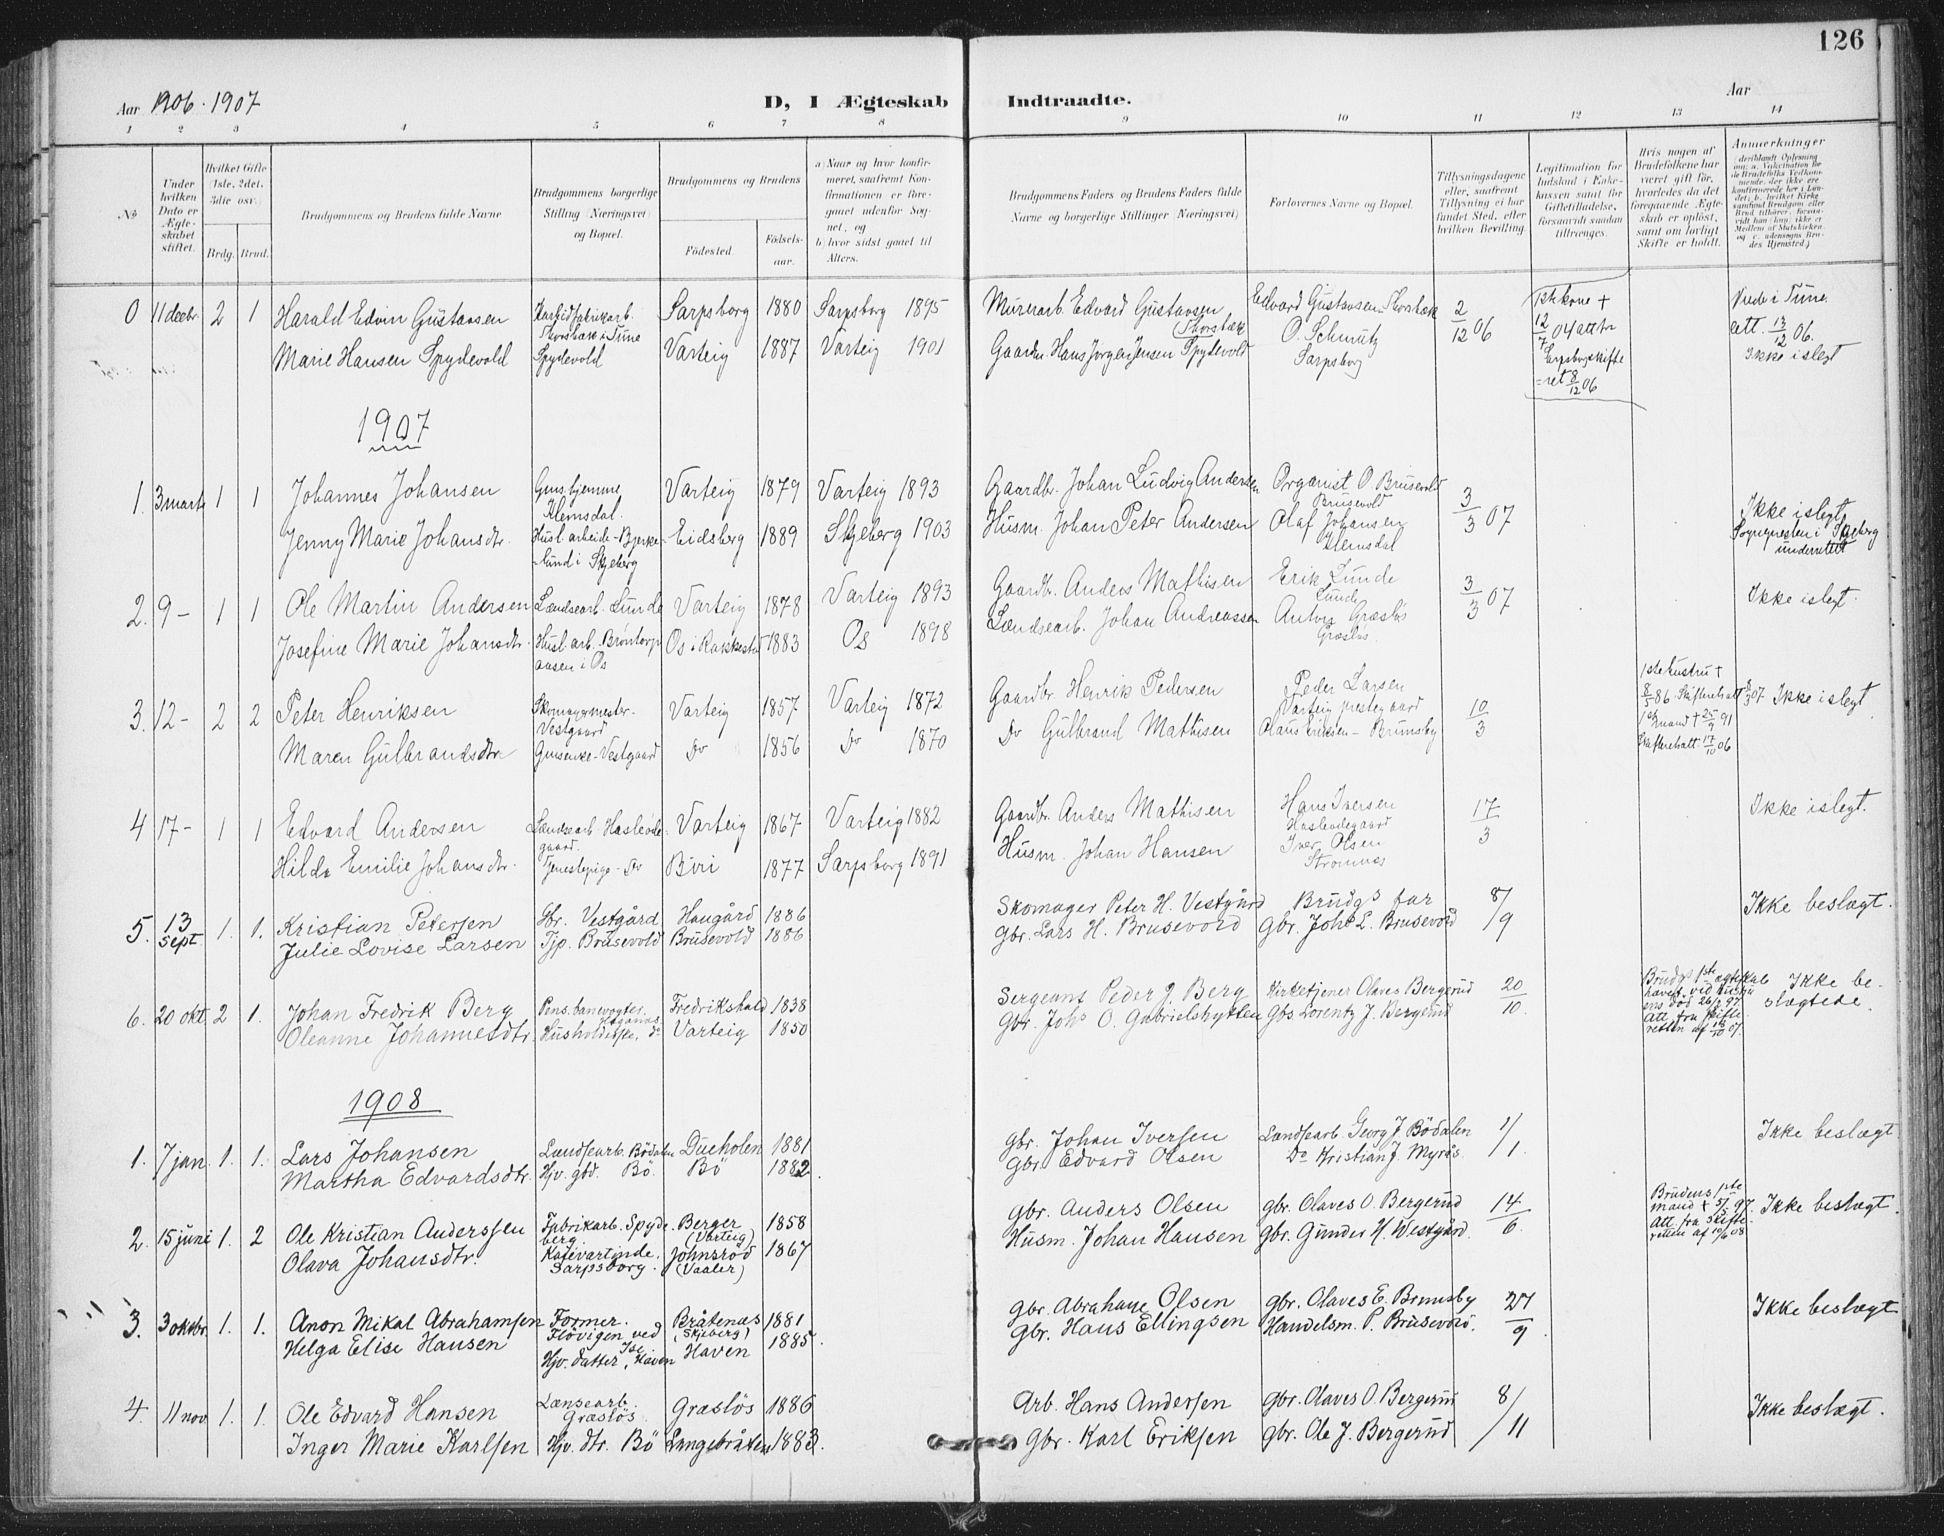 126
Aar 1906. 1907
D, I Ægteskab Indtraadte.
Aar
1 2 3 4 5 6 7 8 9 10 11 12 13 14
No.
Under hvilken Dato er Ægteskabet stiftet.
Hvilket Gifte (1ste, 2det, 3die osv.)
Brdg. Brud.
Brudgommens og Brudens fulde Navne
Brudgommens borgerlige Stilling (Næringsvei) og Bopæl.
Brudgommens og Brudens
Födested.
Födselsaar.
a) Naar og hvor konfirmeret, saafremt Konfirmationen er foregaaet udenfor Sognet, og
b) hvor sidst gaaet til Alters.
Brudgommens Faders og Brudens Faders fulde Navne og borgerlige Stillinger (Næringsvei)
Forlovernes Navne og Bopæl.
Tillysningsdagene eller, saafremt Tillysning ei har fundet Sted, efter hvilken Bevilling.
Legitimation for Indskud i Enkekassen samt for Giftetilladelse, forsaavidt saadan tiltrænges.
Hvis nogen af Brudefolkene har været gift før, hvorledes da det foregaaende Ægteskab er opløst, samt om lovligt Skifte er holdt.
Anmerkninger
0 11 decbr. 2 1 Harald Edvin Gustavsen Karbidfabrikarb. Torsbæk i Tune Sarpsborg 1880 Sarpsborg 1895 Murerarb. Edvard Gustavsen Torsbæk Edvard Gustavsen Torsbæk 2/12 06 1ste kone + 12/7 04 att fr Sarpsborg skifteret 8/12 06 Viede i Tune att. 13/12 06.
Marie Hansen Spydevold Spydevold Varteig 1887 Varteig 1901 Gaardbr. Hans Jørgen Jensen Spydevold O. Schmutz Sarpsborg Ikke i slegt
1907
1. 3 marts 1 1 Johannes Johansen Gaus hjemme Klemsdal. Varteig 1879 Varteig 1893 Gaardbr. Johan Ludvig Andersen Organist O Brusevold Brusevold 3/3 07 Ikke i slegt
Jenny Marie Johansdtr. Husl arbeide - Bjerkelund i Skjeberg Eidsberg 1889 Skjeberg 1903 Husm. Johan Peter Andersen Olaf Johansen Klemsdal Sognepresten i Skjeberg underrettet
2. 9 - 1 1 Ole Martin Andersen Lændsearb. Lunde Varteig 1878 Varteig 1893 Gaardb. Anders Mathisen Erik Lunde Lunde 3/3 07 Ikke i slegt.
Josefine Marie Johansdtr. Husl arb. Brøntorpaasen i Os Os i Rakkestad 1883 Os 1898 Lændsearb. Johan Andreassen Anton Græsløs Græsløs
3. 12 - 2 2 Peter Henriksen Skomagermester - Vestgaard Varteig 1857 Varteig 1872 Gaardbr. Henrik Pedersen Peder Larsen Varteig prestegaard 10/3 1ste hustru + 8/5 86 Skifteretsatt 8/3 07 Ikke i slegt
Maren Gulbrandsdtr. Grdsenke - Vestgaard Do 1856 Do 1870 Do Gulbrand Mathisen Olaus Eriksen - Brunsby 1ste mand + 25/9 91 Skifteretsatt 17/10 06
4 17 - 1 1 Edvard Andersen Lændsearb Hasleødegaard. Varteig 1867 Varteig 1882 Gaardbr. Anders Mathisen Hans Iversen Hasleødegaard 17/3 Ikke i slegt.
Hilda Emilie Johansdtr. Tjenestepige - Do Biri 1877 Sarpsborg 1891 Husm. Johan Hansen Iver Olsen Strømnes
5. 13 sept. 1. 1. Kristian Petersen Gbr. Vestgård Haugård 1886 Skomager Peter H. Vestgård Brudgs far 8/9 Ikke beslægt.
Julie Lovise Larsen Tjp. Brusevold Brusevold 1886 Gbr. Lars H. Brusevold Gbr. Johs L. Brusevold
6. 20 okt. 2 1. Johan Fredrik Berg Pens. banevogter, Haganes Fredrikshald 1838 Sergeant Peder J. Berg Kirketjener Olaves Bergerud 20/10 Brudgs 1ste ægteskab hævet ved hustruens död 26/2 97. Att. fra skifteretten af 18/10 07. Ikke beslægtede
Oleanne Johannesdtr. Husholderske, do Varteig 1850 Gbr. Johs O. Gabrielshytten Gbs Lorentz J. Bergerud
1908
1. 7 jan. 1. 1. Lars Johansen Lændsearb. Bödalen Dueholen 1881 Gbr. Johan Iversen Lændsearb. Georg J Bödalen 1/1 Ikke beslægt
Martha Edvardsdtr. Hjv. gbd. Bö. Bö 1882. Gbr. Edvard Olsen Do Kristian J. Myrås
2. 15 juni 1. 2 Ole Kristian Anderssen Fabrikarb. Spydeberg. Berger (Varteig) 1858 Gbr. Anders Olsen Gbr. Olaves O. Bergerud 14/6 Brudens 1ste mand + 5/5 97. Att. fra Skifteretten af 10/6 08. Ikke beslægt.
Olava Johansdtr. Kafévartinde. Sarpsborg. Johnsröd (Vaaler) 1867 Husm. Johan Hansen Gbr. Gunder H. Westgård.
3. 3 oktbr. 1. 1. Anon Mikal Abrahamsen Former. Flövigen ved Ise Bråtenæs (Skjeberg) 1881 Gbr. Abraham Olsen Gbr. Olaves E. Brunsby 27/9 Ikke beslægt
Helga Elise Hansen Hjv. datter, Haven Haven 1885. Gbr. Hans Ellingsen Handelsm. P. Brusevold.
4. 11 nov. 1. 1. Ole Edvard Hansen Lænsearb. Græslös. Græslös 1886 Arb. Hans Andersen Gbr. Olaves O. Bergerud 8/11 Ikke beslægt.
Inger Marie Karlsen Hjv. dtr. Bö Langebråten 1883. Gbr. Karl Eriksen Gbr. Ole J. Bergerud